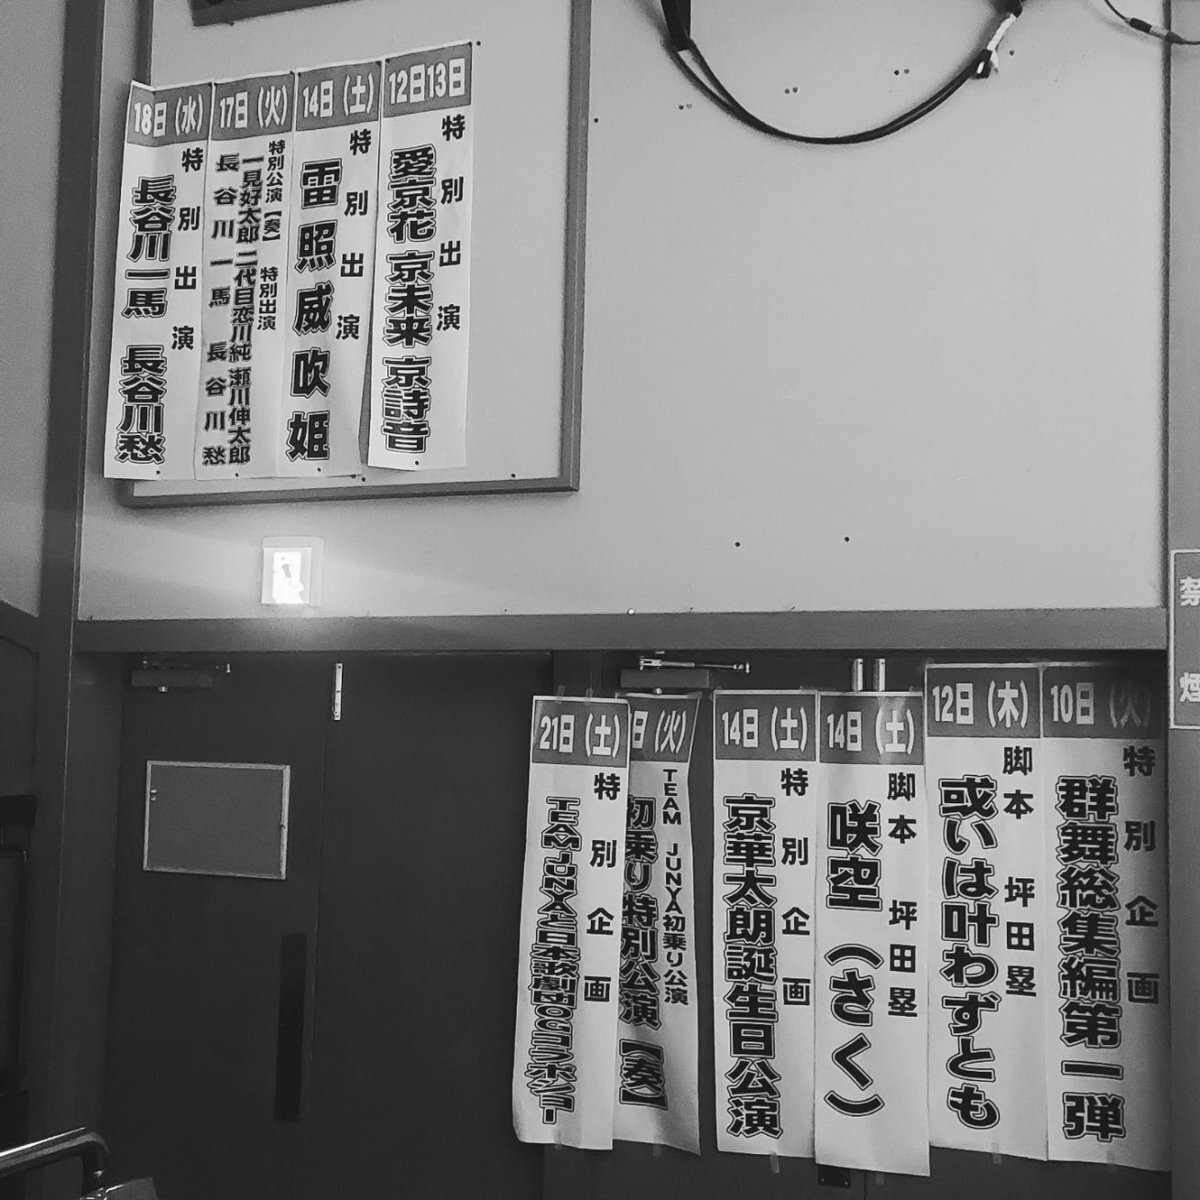 12日13日
特別出演
愛京花 京未来 京詩音
14日（土）
特別出演
雷照威吹姫
17日（火）
特別公演【奏】 特別出演
一見好太郎 二代目恋川純 瀬川伸太郎
長谷川一馬 長谷川愁
18日（水）
特別出演
長谷川一馬 長谷川愁
禁煙
10日（火）
特別企画
群舞総集編第一弾
12日（木）
脚本 坪田塁
或いは叶わずとも
14日（土）
脚本 坪田塁
咲空（さく）
14日（土）
特別企画
京華太朗誕生日公演
日（火）
TEAM JUNYA初乗り公演
初乗り特別公演【奏】
21日（土）
特別企画
TEAM JUNYAと日本歌劇団OGコラボショー